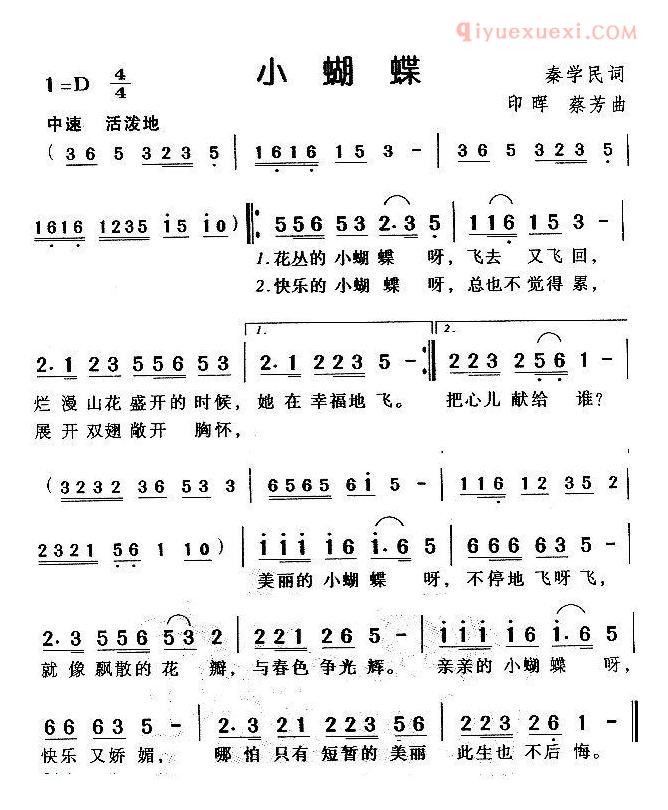 qiyuexuexi.com
小蝴蝶
1=D 4/4
秦学民词
印晖 蔡芳曲
中速 活泼地
(36 5 323 5 | 1616 15 3 - | 36 5 323 5 |
1616 1235 15 10) ‖: 556 53 2·3 5 | 116 15 3 - |
1.花丛的 小蝴 蝶 呀, 飞去 又飞 回,
2.快乐的 小蝴 蝶 呀, 总也不 觉得 累,
1. 2.
2·1 23 556 53 | 2·1 223 5 - :‖ 223 256 1 - |
烂 漫 山花 盛开的 时候, 她 在 幸福地 飞。 把心儿 献给 谁?
展 开 双翅 敞开 胸怀,
(3232 36 53 3 | 6565 61 5 - | 116 12 35 2 |
2321 56 1 10) | 111 16 1·6 5 | 666 63 5 - |
美丽的 小蝴 蝶 呀, 不停地 飞呀 飞,
2·3 556 53 2 | 221 26 5 - | 111 16 1·6 5 |
就 像 飘散的 花 瓣, 与春色 争光 辉。 亲亲的 小蝴 蝶 呀,
66 63 5 - | 2·3 21 223 56 | 223 26 1 - |
快乐 又娇 媚, 哪 怕 只有 短暂的 美丽 此生也 不后 悔。